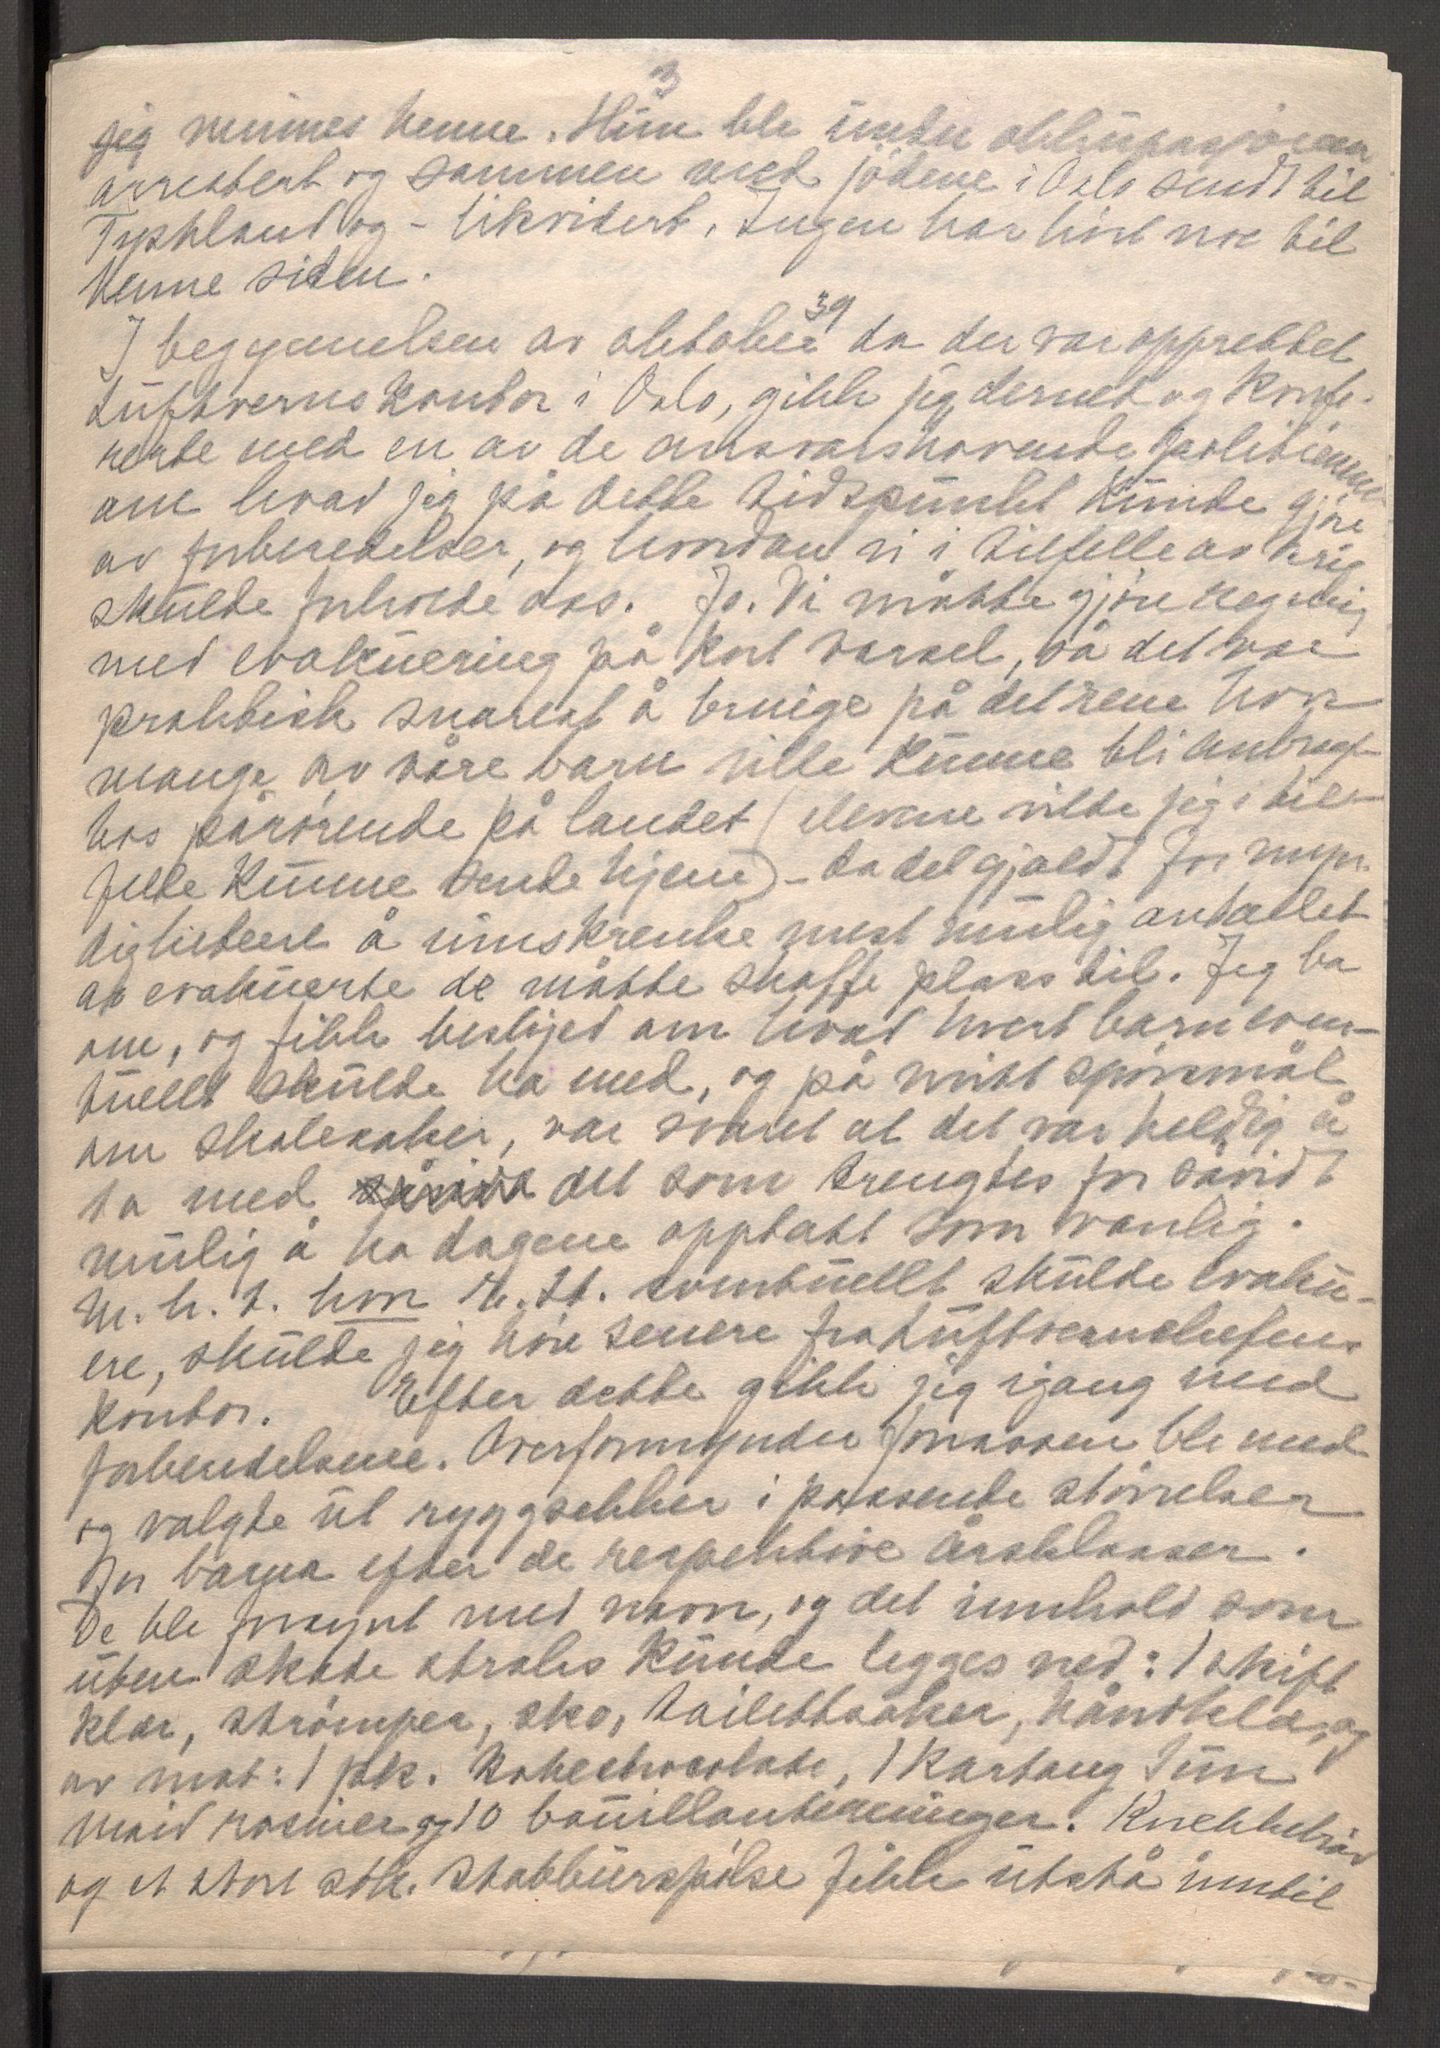 3
jeg minnes henne. Hun ble under okkupasjonen
arrestert og sammen med jødene i Oslo sendt til
Tyskland og - likvidert. Ingen har hört noe til
henne siden.
I begynnelsen av oktober 39 da der var opprettet
Luftvernskontor i Oslo, gikk jeg dermed og konfe-
rerte med en av de ansvarshavende politimenn
om hvad jeg på dette tidspunkt kunde gjøre
av forberedelser, og hvordan vi i tilfelle av krig
skulde forholde oss. Jo. Vi måtte gjøre regning
med evakuering på kort varsel, så det var
praktisk snarest å bringe på det rene hvor
mange av våre barn ville kunne bli anbragt
hos pårørende på landet (elevene vilde jeg i til-
felle kunne sende hjem) - da det gjaldt for myn-
dighetene å innskrenke mest mulig antallet
av evakuerte de måtte skaffe plass til. Jeg ba
om, og fikk beskjed om hvad hvert barn even-
tuellt skulde ha med, og på mitt spörsmål
om skolesaker, var svaret at det var heldig å
ta med det som trengtes for såvidt
mulig å ha dagene opptatt som vanlig.
M. h. t. hvor eventuellt skulde evaku-
ere, skulde jeg høre senere fra Luftvernchefens
kontor. Efter dette gikk jeg igang med
forberedelsene. Overformynder Jonassen ble med
og valgte ut ryggsekker i passende størrelser
for barna efter de respektive årsklasser.
De ble forsynt med navn, og det innhold som
uten skade straks kunde legges ned: 1 skift
klær, strømper, sko, toilettsaker, håndklæ, og
av mat: 1 pk. kokechocolate, 1 kartong Sun
Maid rosiner og 10 bouillonterninger. Knekkebrød
og et stort stk. stabburspölse fikk utstå inntil